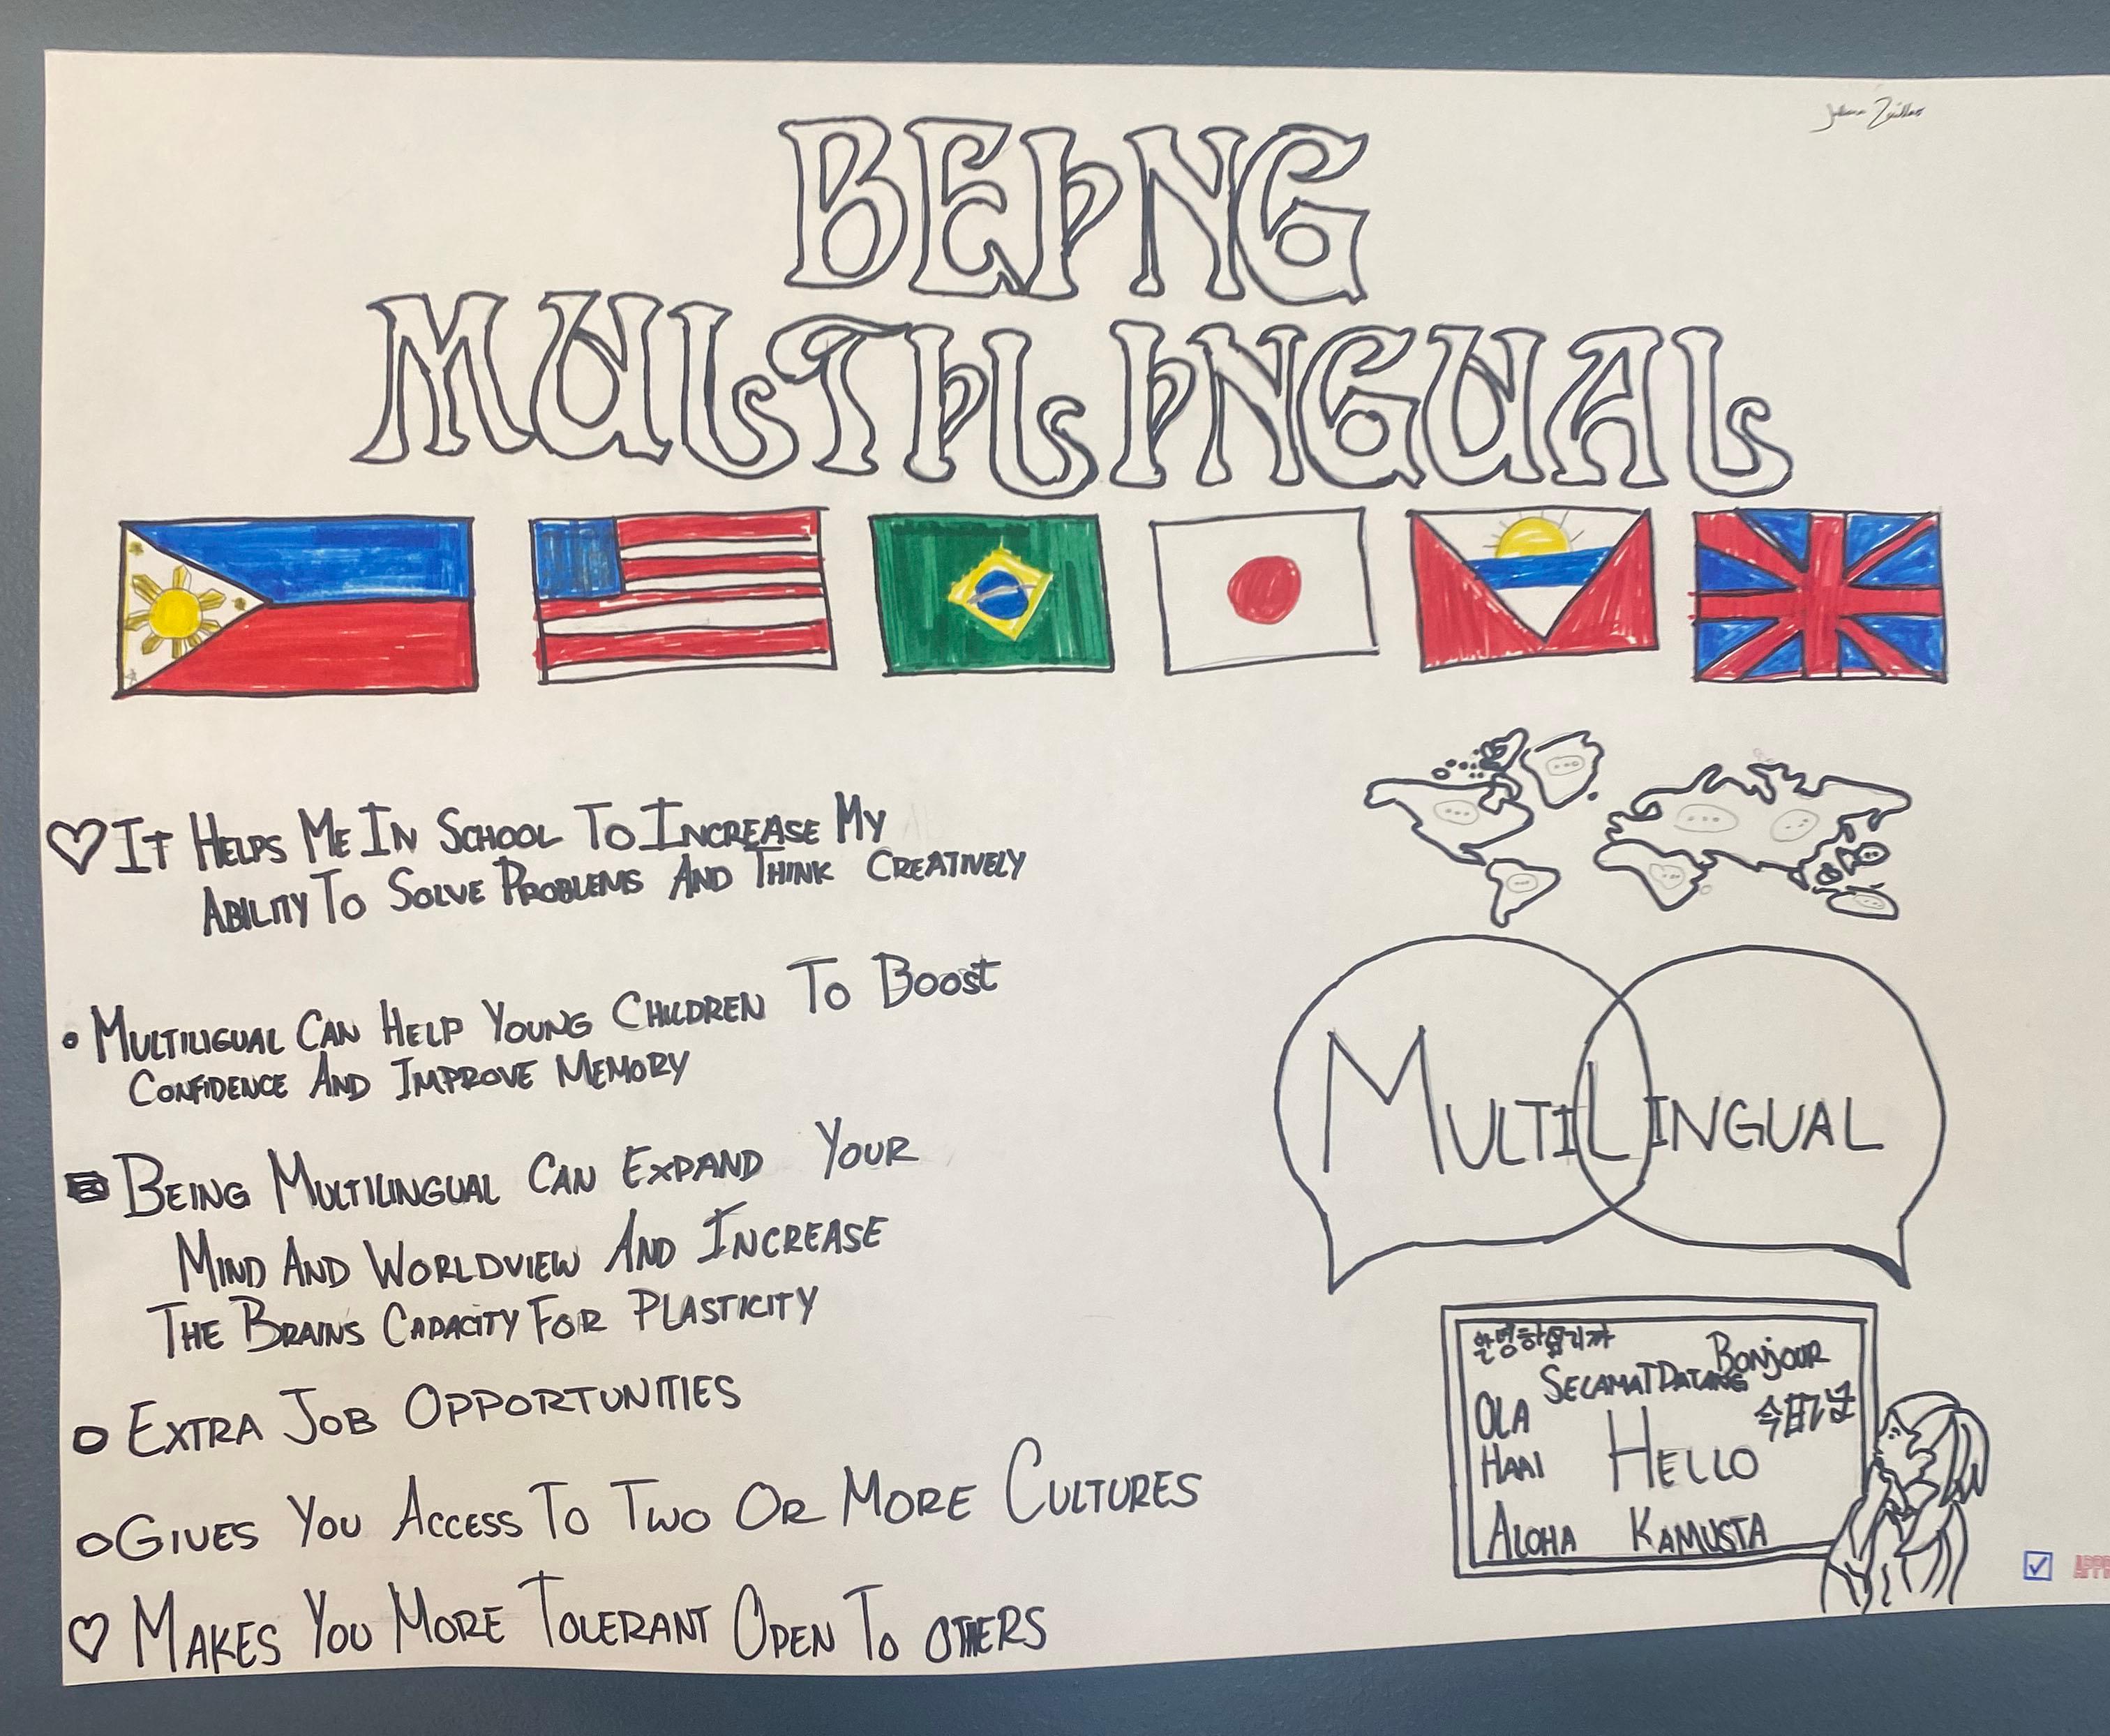 BEING
MULTILINGUAL
It Helps Me In School To Increase My
Ability To Solve Problems And Think Creatively
Multiligual Can Help Young Children To Boost
Confidence And Improve Memory
Being Multilingual Can Expand Your
Mind And Worldview And Increase
The Brains Capacity For Plasticity
Extra Job Opportunities
Gives You Access To Two Or More Cultures
Makes You More Tolerant Open To Others
MultiLingual
Bonjour
Selamat Datang
Ola
Haai
Hello
Aloha Kamusta